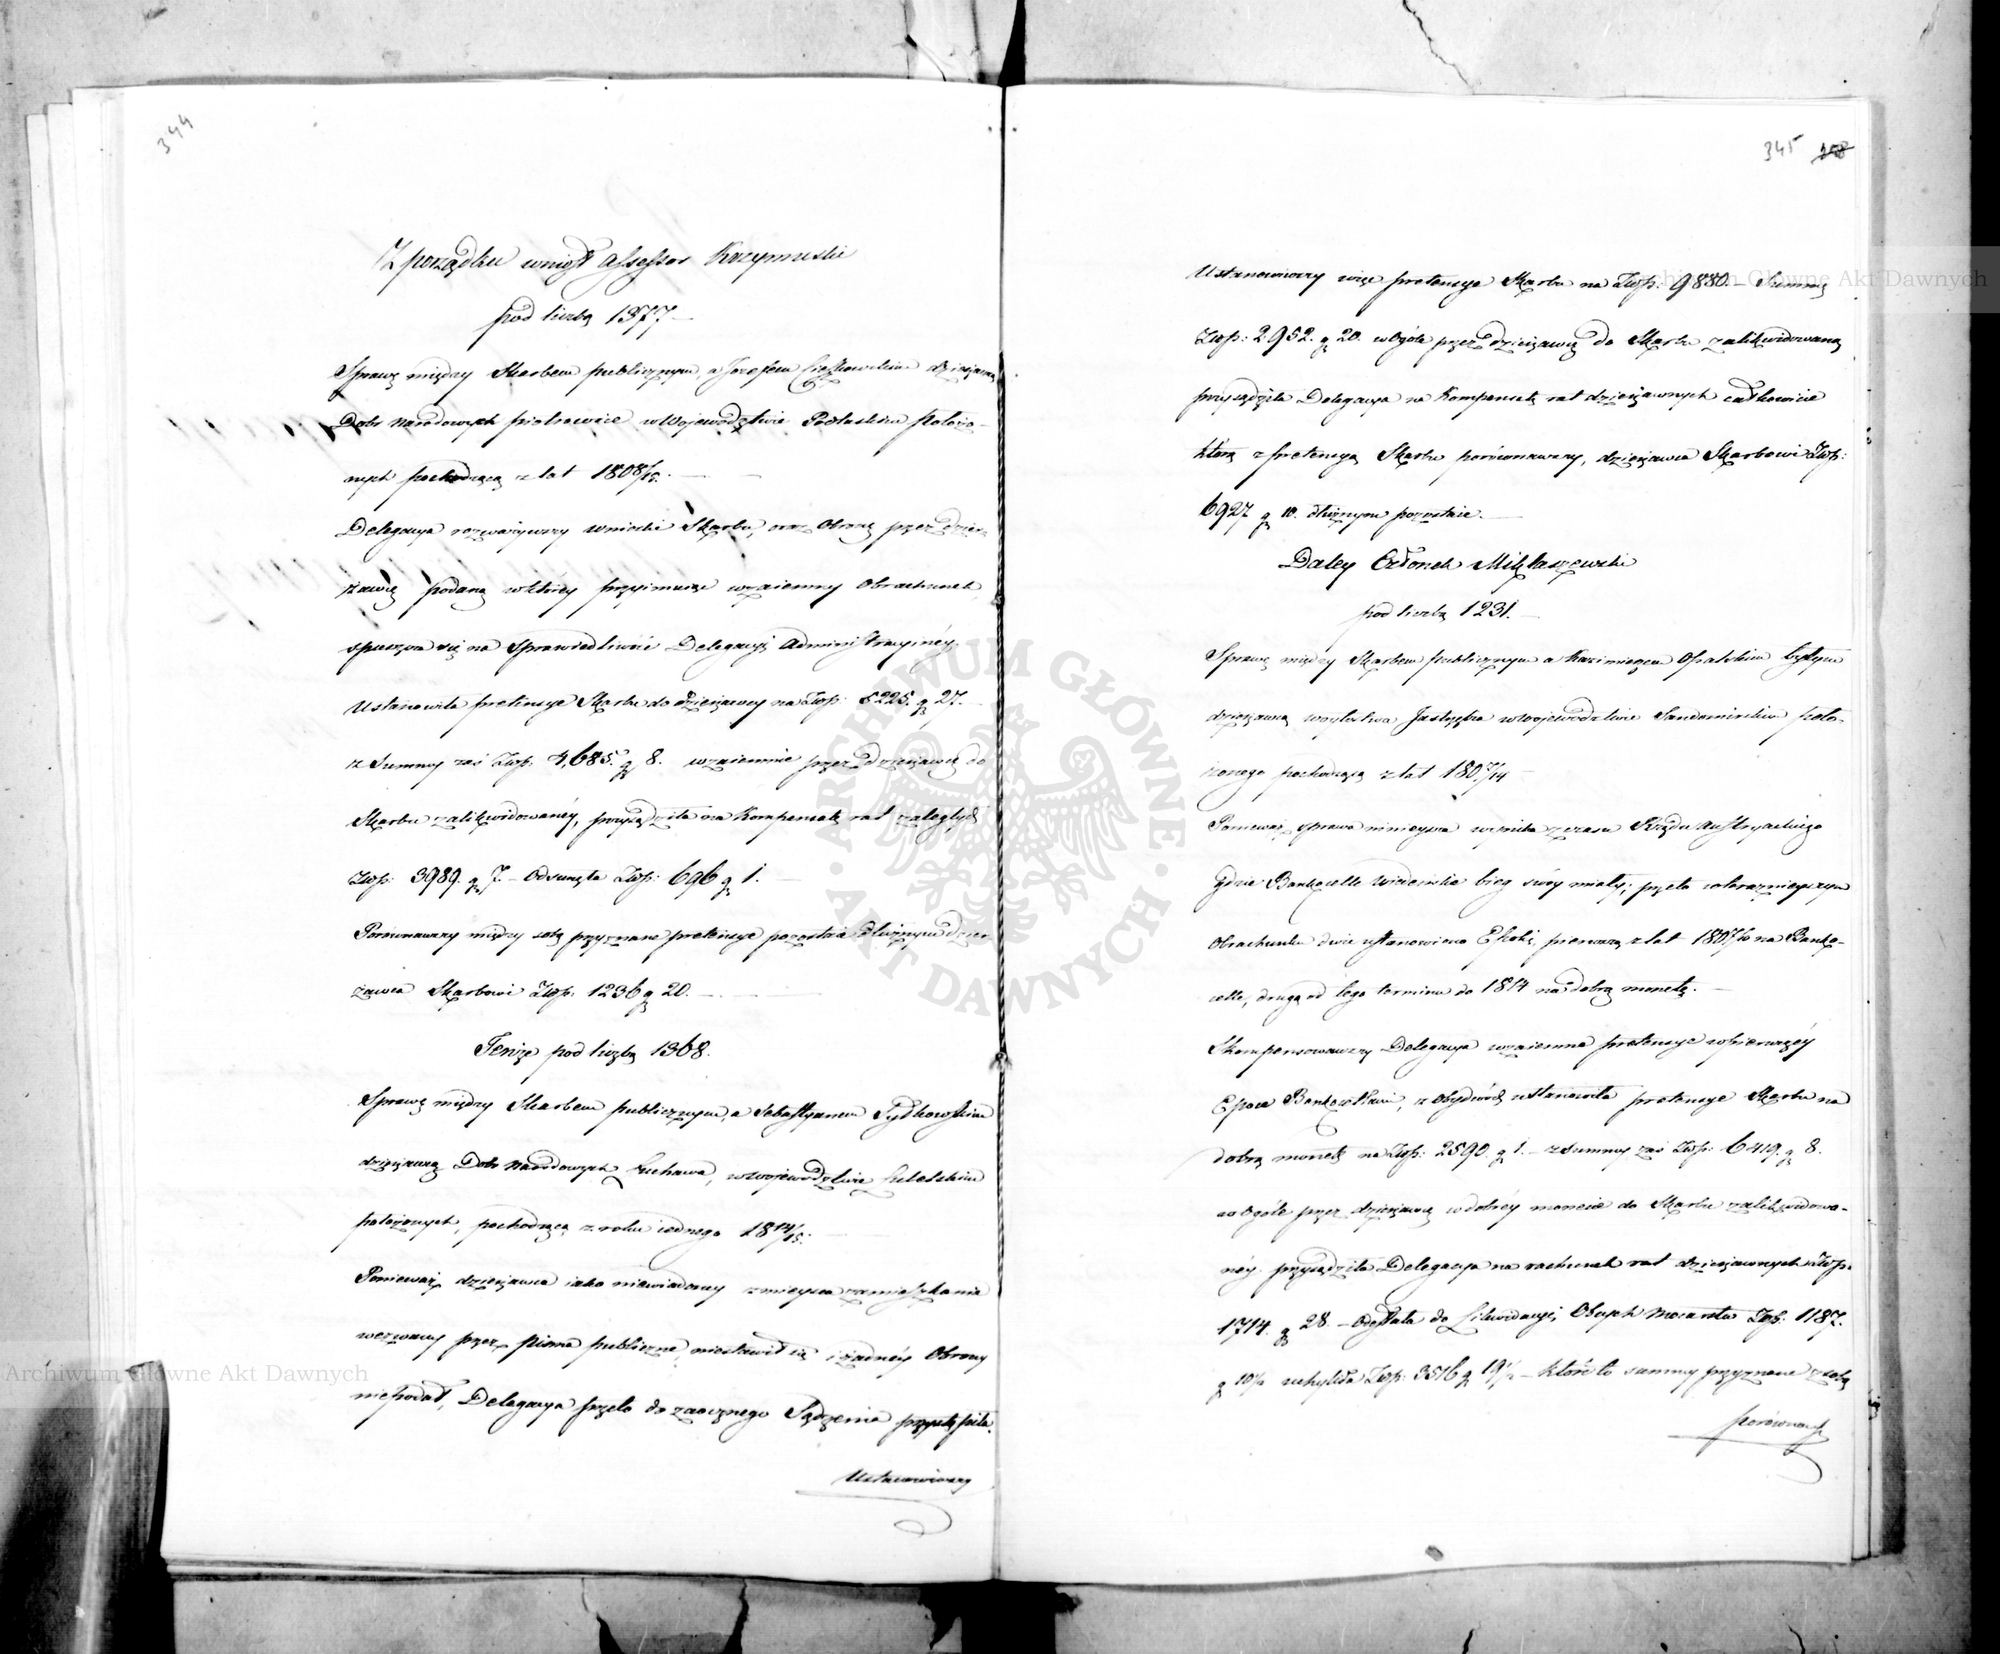 344
Z porządku wniósł Assessor Krzymuski
pod liczbą 1377.—
Sprawę między Skarbem publicznym, a Jozefem Cieszkowskim dzierżawcą
Dobr Narodowych Piotrowice w Województwie Podlaskim Położo-
nych pochodzącą z lat 1808/15. —
Delegacya rozważywszy wnioski Skarbu, oraz Obronę przez dzier-
żawcę podaną w któréy przyimuiąc wzaiemny Obrachunek,
spuszcza się na Sprawiedliwość Delegacyi Administracyinéy.
Ustanowiła pretensye Skarbu do dzierżawcy na Złop: 5225. g 27.—
z Summy zaś Złop: 4,685. g 8. wzaiemnie przez dzierżawcę do
Skarbu zalikwidowanéy, przysądziła na Kompensatę rat zaległych
Złop: 3989. g 7. — Odsunęła Złop: 696 g 1. —
Porównawszy między sobą przyznane pretensye pozostaie dłużnym dzier-
żawca Skarbowi Złop: 1236 g 20. —
Tenże pod liczbą 1368.
Sprawę między Skarbem publicznym, a Sebastyanem
dzierżawcą Dobr Narodowych Łuchawa, w Województwie Lubelskim
położonych, pochodzącą z roku iednego 1814/15. —
Ponieważ dzierżawca iako niewiadomy z mieysca zamieszkania
wezwany przez pisma publiczne, niestawił się i żadnéy Obrony
niepodał, Delegacya przeto do zaocznego Sądzenia przystąpiła.
Ustanowiwszy
345 158
Ustanowiwszy więc pretensye Skarbu na Złop: 9880.— Summę
Złop: 2952. g 20. w Ogóle przez dzierżawcę do Skarbu zalikwidowaną
przysądziła Delegacya na Kompensatę rat dzierżawnych całkowicie
którą z pretensyą Skarbu porównawszy, dzierżawca Skarbowi Złop:
6927 g 10. dłużnym pozostaie. —
Daley Członek Miklaszewski
pod liczbą 1231.—
Sprawę między Skarbem publicznym a Kazimierzem Opalskim byłym
dzierżawcą woytostwa Jastrzębia w Województwie Sandomirskim poło-
żonego pochodzącą z lat 180 7/14 —
Ponieważ sprawa ninieysza wynikła z czasu Rządu Austryackiego
gdzie Bankocetle Wiedeńskie bieg swóy miały; przeto w teraźnieyszym
Obrachunku dwie ustanowiono Epoki, pierwszą z lat 1807/10 na Banko-
cetle, drugą od tego terminu do 1814 na dobrą monetę. —
Skompensowawszy Delegacya wzaiemne pretensye w pierwszéy
Epoce Bankocetlami, z Obydwóch ustanowiła pretensye Skarbu na
dobrą monetę na Złop: 2590. g 1.— z summy zaś Złop: 6419. g 8.
w Ogóle przez dzierżawcę w dobréy monecie do Skarbu zalikwidowa-
néy przysądziła Delegacya na rachunek rat dzierżawnych Złop:
1714. g 28. — Odesłała do Likwidacyi Obcych Mocarstw Złp: 1187.
g 10½ uchyliła Złop: 3516 g 19½ — które to summy przyznane z sobą
porównawszy
Archiwum Główne Akt Dawnych
Archiwum Główne Akt Dawnych
ARCHIWUM GŁÓWNE · AKT DAWNYCH ·